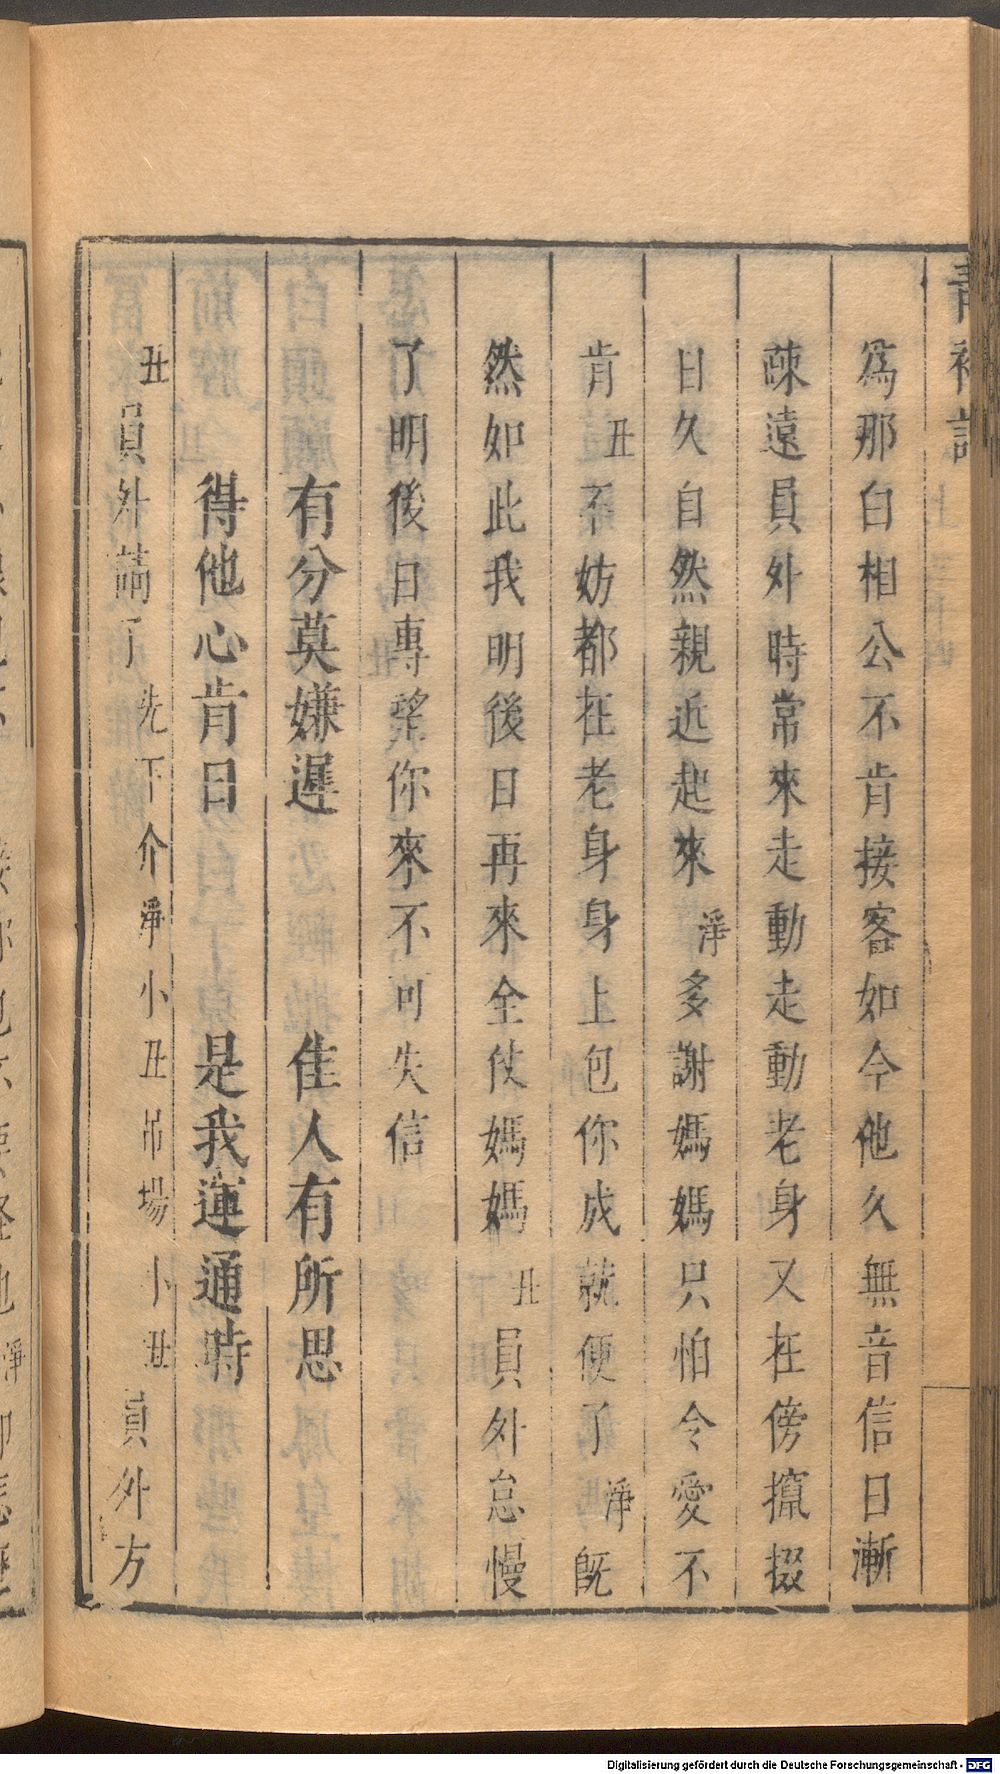 青衫記
爲那白相公不肯接客如今他久無音信日漸
疎遠員外時常來走動走動老身又在傍攛掇
日久自然親近起來淨多謝媽媽只怕令愛不
肯丑不妨都在老身身上包你成就便了淨旣
然如此我明後日再來全仗媽媽丑員外怠慢
了明後日專望你來不可失信
有分莫嫌遲 佳人有所思
得他心肯日 是我運通時
丑員外請了先下介淨小丑吊場小丑員外方
Digitalisierung gefördert durch die Deutsche Forschungsgemeinschaft - DFG